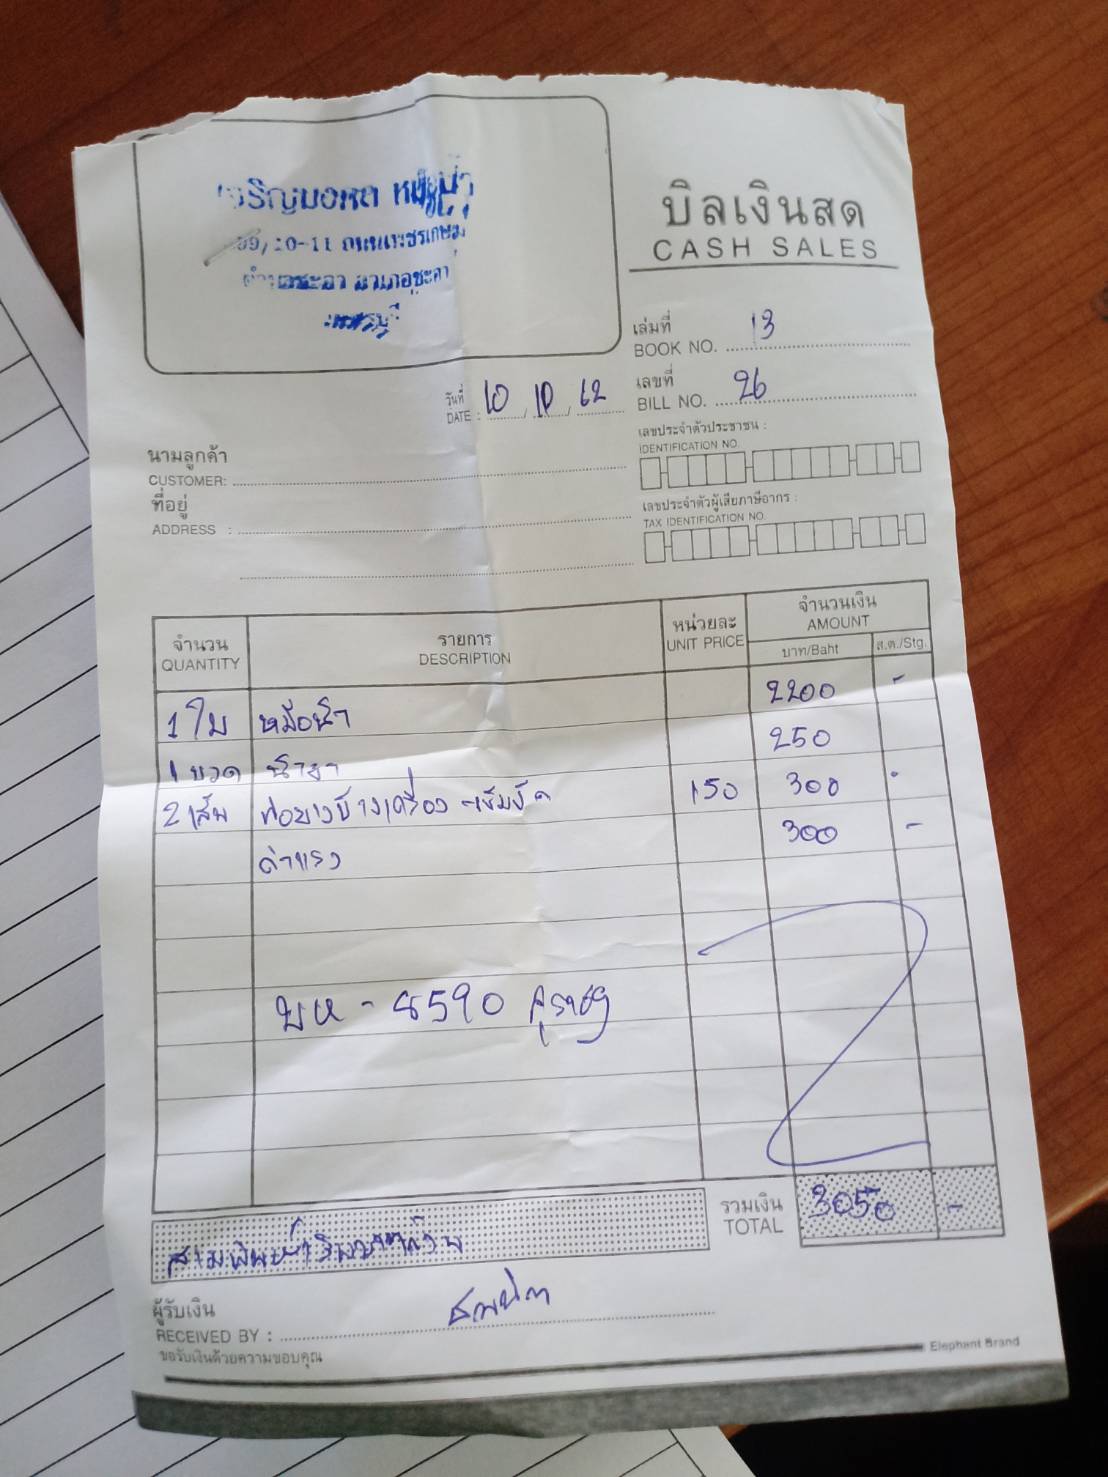 เจริญยนต หม้อน้ำ
99/10-11 ถนนเพชรเกษม
ตำบลชะอำ อำเภอชะอำ
เพชรบุรี
บิลเงินสด
CASH SALES
เล่มที่
BOOK NO. 13
เลขที่
BILL NO. 26
วันที่
DATE : 10 / 10 / 62
เลขประจำตัวประชาชน :
IDENTIFICATION NO.
นามลูกค้า
CUSTOMER:
ที่อยู่
ADDRESS :
เลขประจำตัวผู้เสียภาษีอากร :
TAX IDENTIFICATION NO.
จำนวน รายการ หน่วยละ จำนวนเงิน
QUANTITY DESCRIPTION UNIT PRICE AMOUNT
บาท/Baht ส.ต./Stg.
1 ใบ หม้อน้ำ 2200 -
1 ขวด น้ำยา 250
2 เส้น ท่อยางข้างเครื่อง 150 300 -
ค่าแรง 300 -
8590
รวมเงิน
TOTAL 3050 -
สามพันห้าสิบบาทถ้วน
ผู้รับเงิน
RECEIVED BY :
ขอรับเงินด้วยความขอบคุณ
Elephant Brand